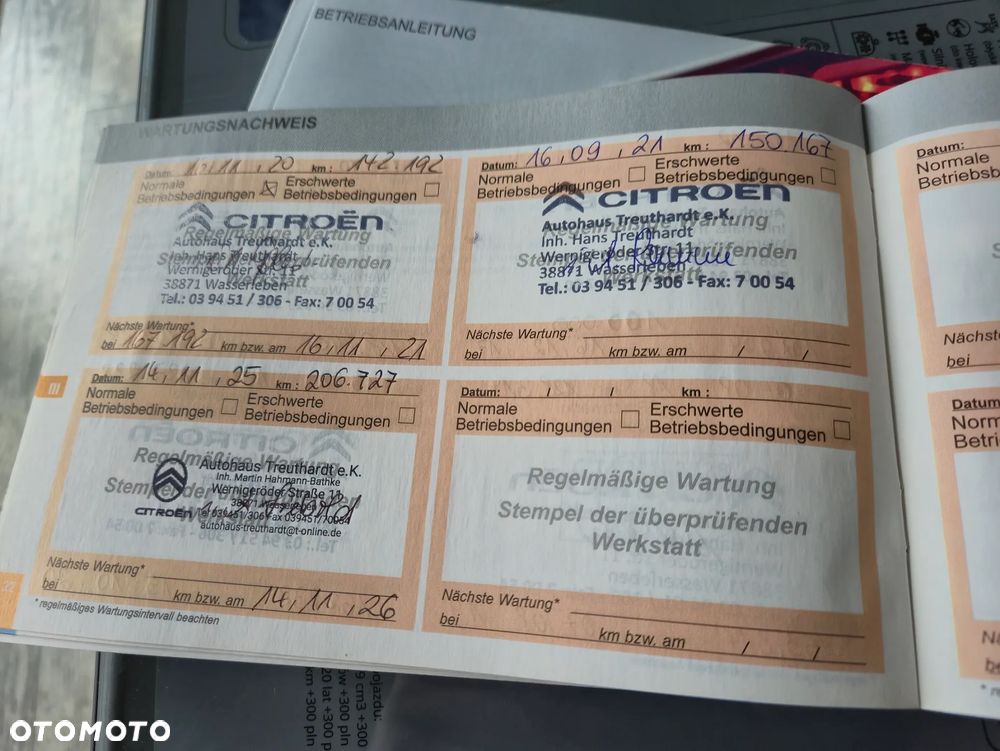 BETRIEBSANLEITUNG
WARTUNGSNACHWEIS
Datum: 16,11,20 km: 142.192
Normale Betriebsbedingungen ☒ Erschwerte Betriebsbedingungen
CITROËN
Regelmäßige Wartung
Autohaus Treuthardt e.K.
Inh. Hans Treuthardt
Wernigeröder Str. 11
38871 Wasserleben
Tel.: 03 94 51 / 306 - Fax: 7 00 54
Nächste Wartung*
bei 167 192 km bzw. am 16,11,21
Datum: 16,09,21 km: 150 167
Normale Betriebsbedingungen Erschwerte Betriebsbedingungen
CITROËN
Autohaus Treuthardt e.K.
Inh. Hans Treuthardt
Wernigeröder Str. 11
38871 Wasserleben
Tel.: 03 94 51 / 306 - Fax: 7 00 54
Nächste Wartung*
bei km bzw. am / /
III
Datum: 14,11,25 km: 206.727
Normale Betriebsbedingungen Erschwerte Betriebsbedingungen
Regelmäßige Wartung
Stempel der
CITROËN
Autohaus Treuthardt e.K.
Inh. Martin Hahmann-Bathke
Wernigeröder Straße 11
38871 Wasserleben
Tel 039451/306 Fax 039451/70054
autohaus-treuthardt@t-online.de
Nächste Wartung*
bei km bzw. am 14,11,26
* regelmäßiges Wartungsintervall beachten
Datum: / / km:
Normale Betriebsbedingungen Erschwerte Betriebsbedingungen
Regelmäßige Wartung
Stempel der überprüfenden
Werkstatt
Nächste Wartung*
bei km bzw. am / /
22
Datum:
Normale
Betriebsb
Nächste
bei
Datum
Norm
Betri
OTOMOTO